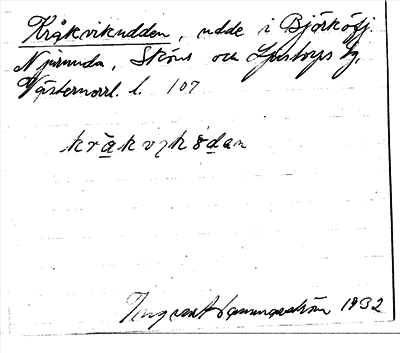 Kråkvikudden, udde i Björköfj.
Njurunda, Sköns och Ljustorps tg,
Västernorrl. l. 107
kråkvikɷdan
Ingvar Hammarström 1932